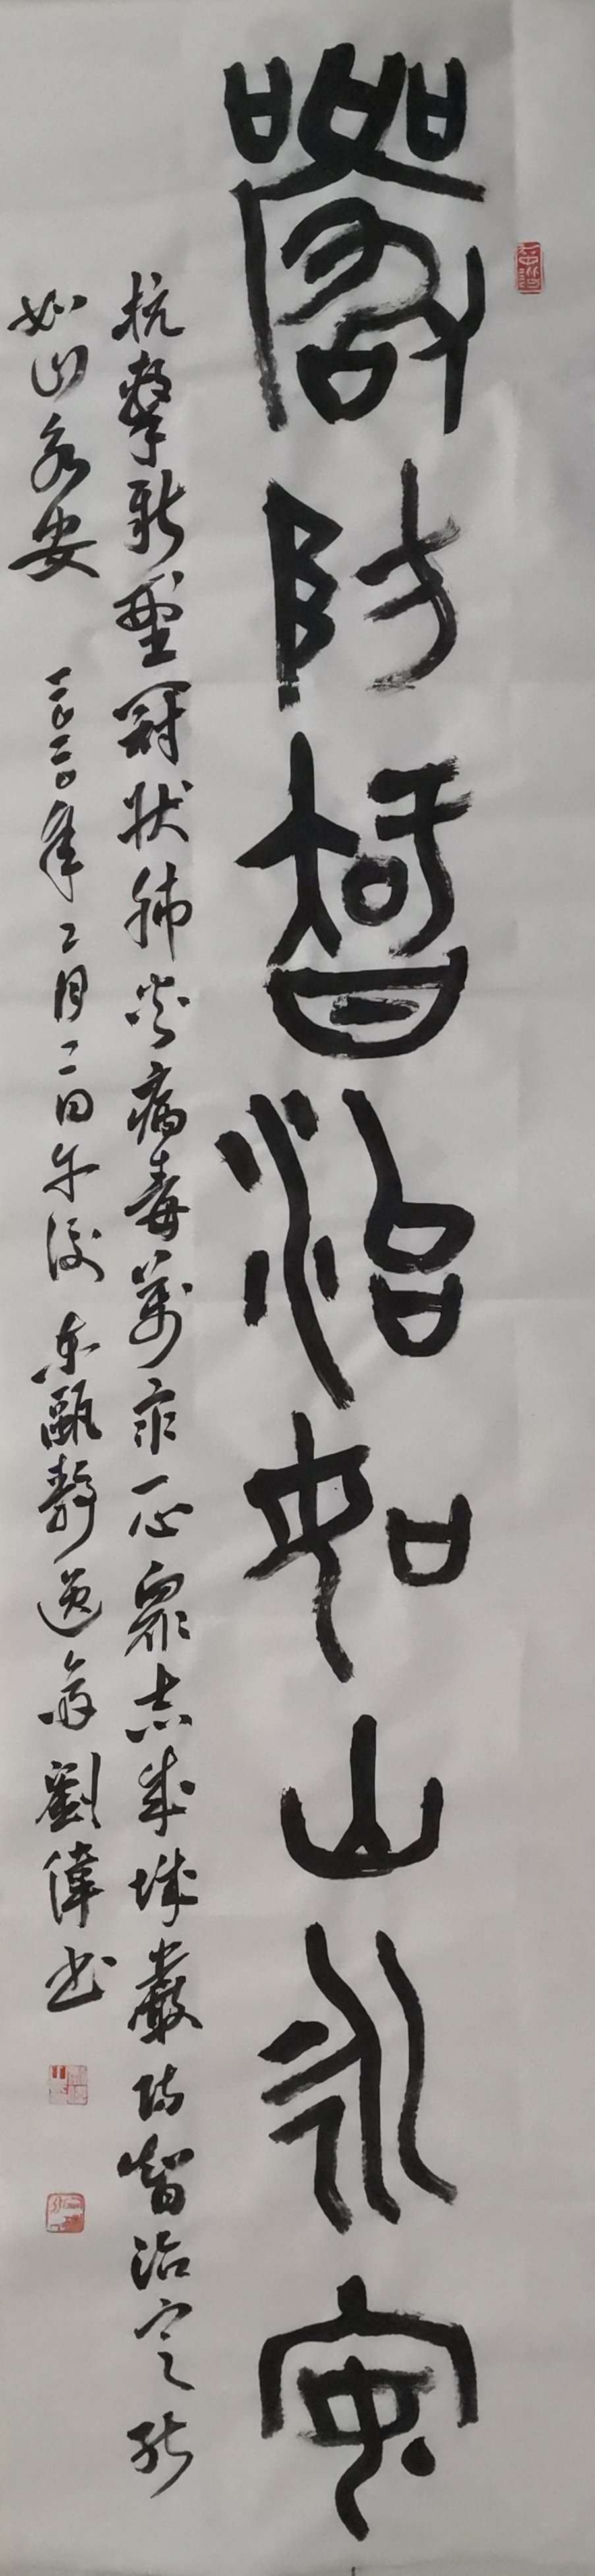 嚴防智治如山永安
抗擊新型冠狀肺炎病毒萬眾一心眾志成城嚴防智治定能
如山永安 二〇二〇年二月二日午後 東甌靜逸齋劉偉書